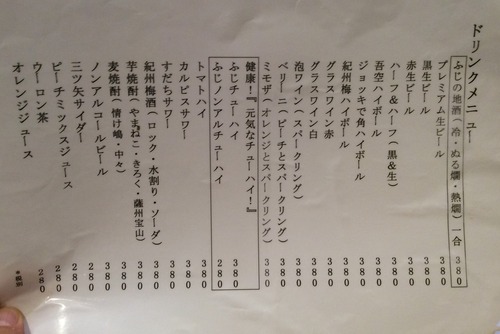 ドリンクメニュー
ふじの地酒(冷・ぬる燗・熱燗)一合 380
プレミアム生ビール 380
黒生ビール 380
赤生ビール 380
ハーフ&ハーフ(黒&生) 380
吾空ハイボール 380
ジョッキで角ハイボール 380
紀州梅ハイボール 380
グラスワイン赤 380
グラスワイン白 380
泡ワイン(スパークリング) 380
ベリーニ(ピーチとスパークリング) 380
ミモザ(オレンジとスパークリング) 380
健康!『元気なチューハイ!』
ふじチューハイ 380
ふじノンアルチューハイ 280
トマトハイ 380
カルピスサワー 380
すだちサワー 380
紀州梅酒(ロック・水割り・ソーダ) 380
芋焼酎(やまねこ・きろく・薩州宝山) 380
麦焼酎(情け嶋・中々) 380
ノンアルコールビール 380
三ツ矢サイダー 280
ピーチミックスジュース 280
ウーロン茶 280
オレンジジュース 280
*税別